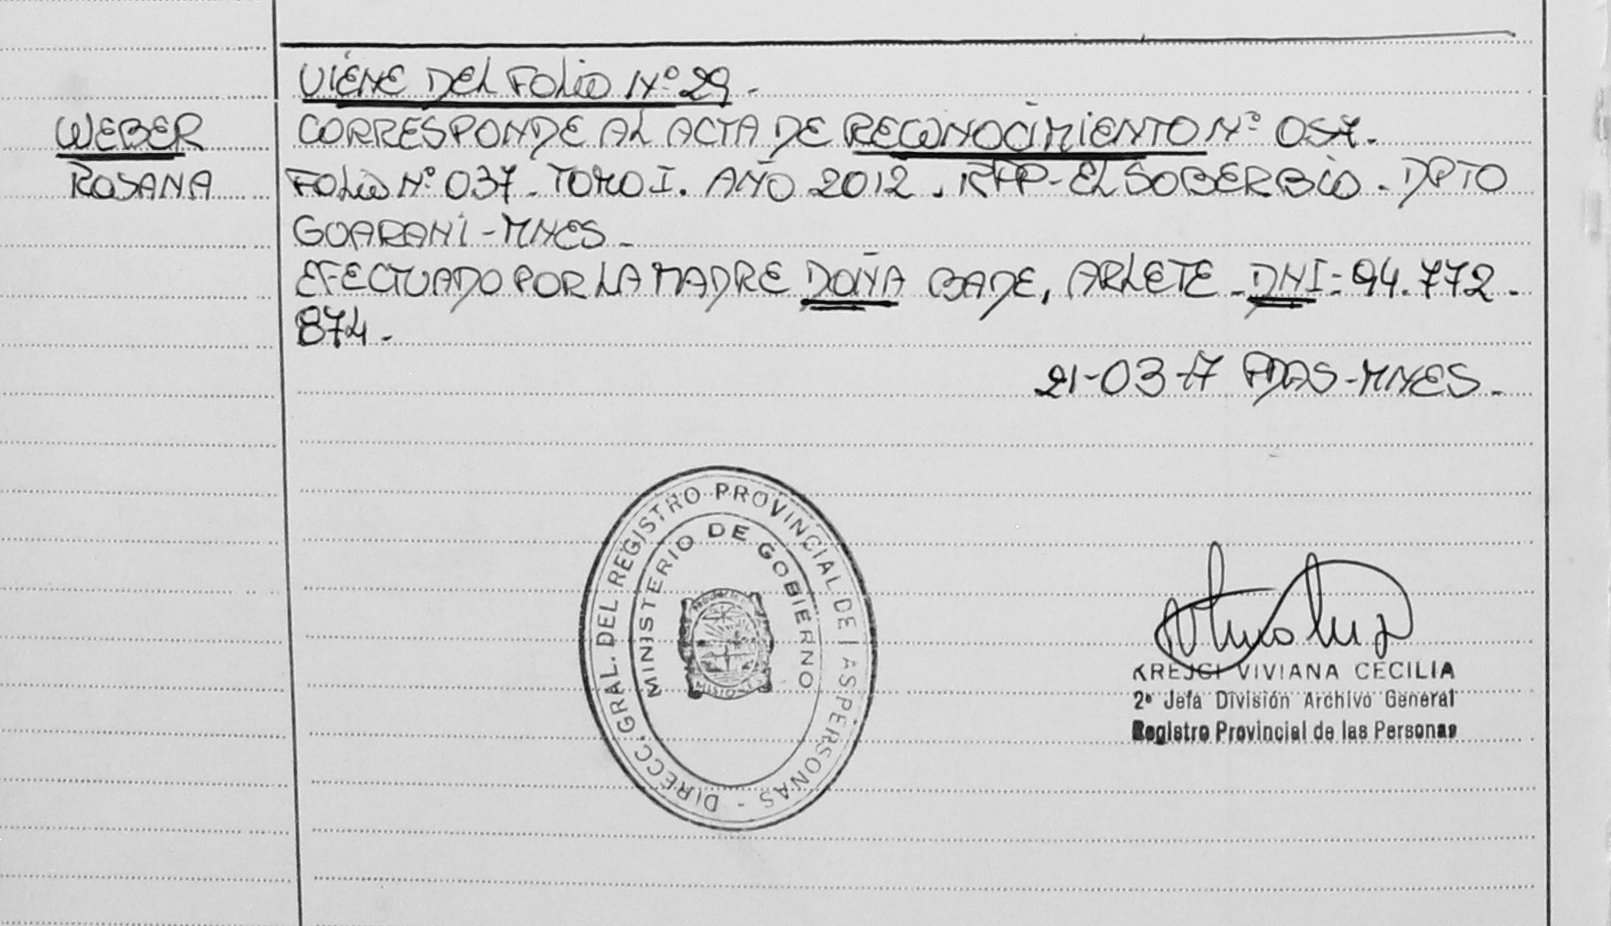 VIENE DEL FOLIO Nº 29.
WEBER
ROSANA
CORRESPONDE AL ACTA DE RECONOCIMIENTO Nº 057.
FOLIO Nº 037. TOMO I. AÑO 2012. RPP-EL SOBERBIO. DPTO
GUARANÍ-MNES.
EFECTUADO POR LA MADRE DOÑA BADE, ARLETE. DNI: 94.772.
874.
21-03-17 PDAS-MNES.
DIRECC. GRAL. DEL REGISTRO PROVINCIAL DE LAS PERSONAS -
MINISTERIO DE GOBIERNO
MISIONES
KREJCI VIVIANA CECILIA
2º Jefa División Archivo General
Registro Provincial de las Personas